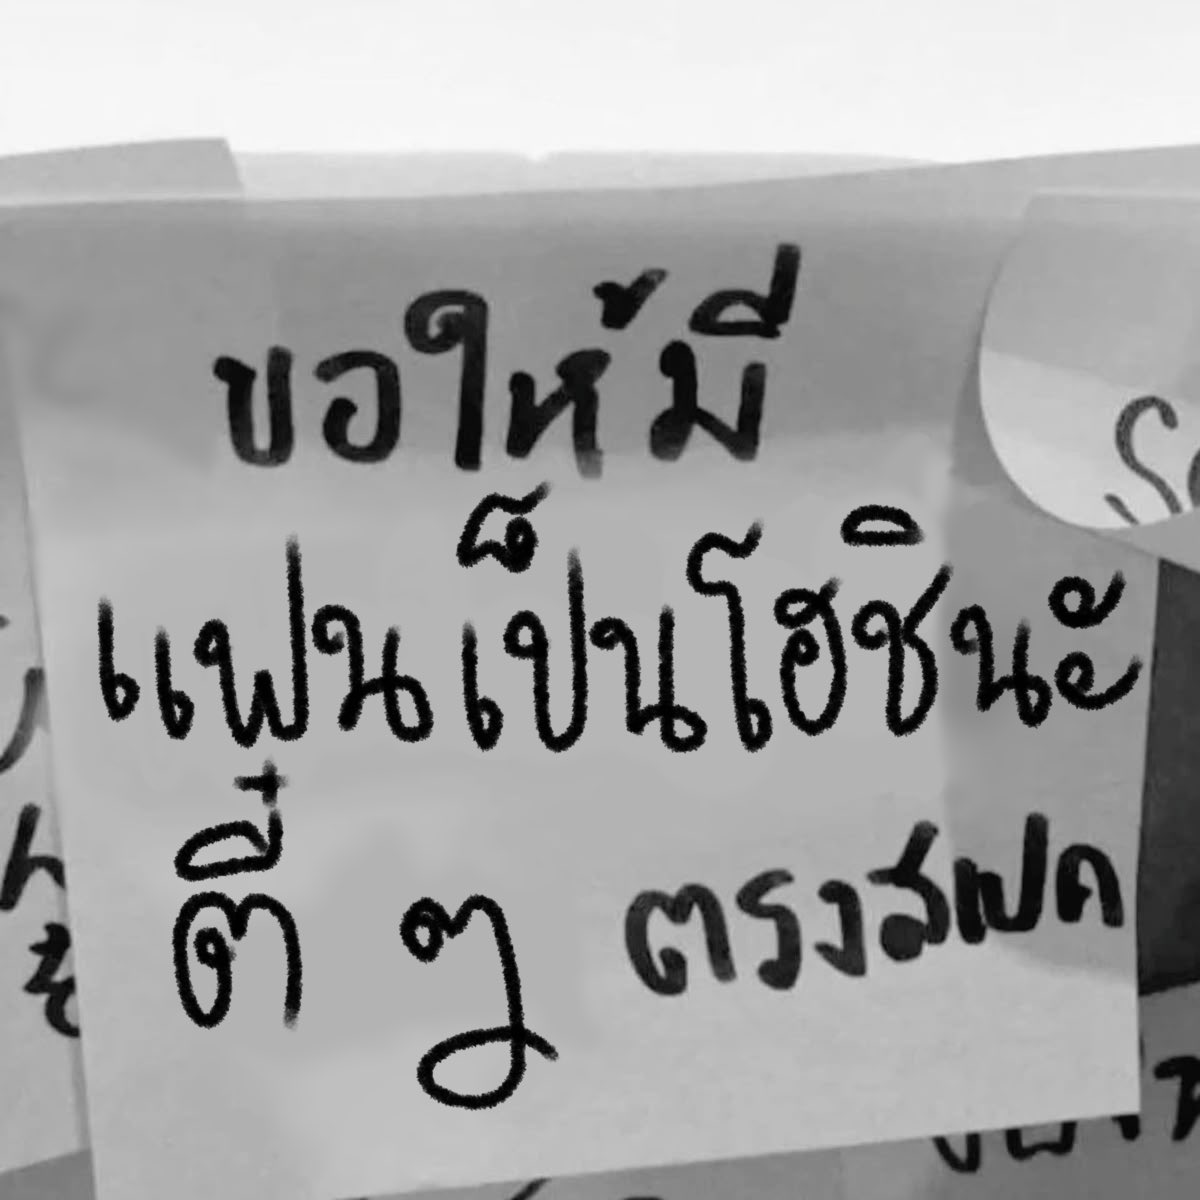 ขอให้มี
แฟนเป็นโฮชินะ
ตี๋ ๆ ตรงสเปค